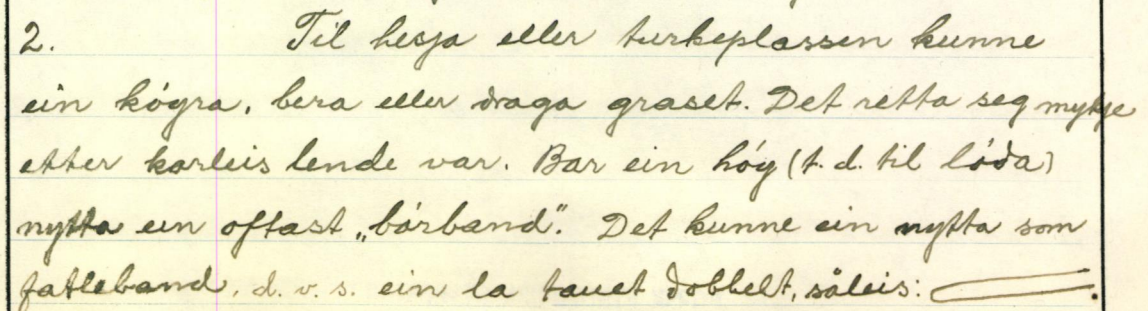 2. Til hesja eller turkeplassen kunne
ein kógra, bera eller draga graset. Det retta seg mykje
etter korleis lende var. Bar ein hóy (t. d. til lóda)
nytta ein oftast „bórband". Det kunne ein nytta som
fatleband, d. v. s. ein la tauet dobbelt, såleis: